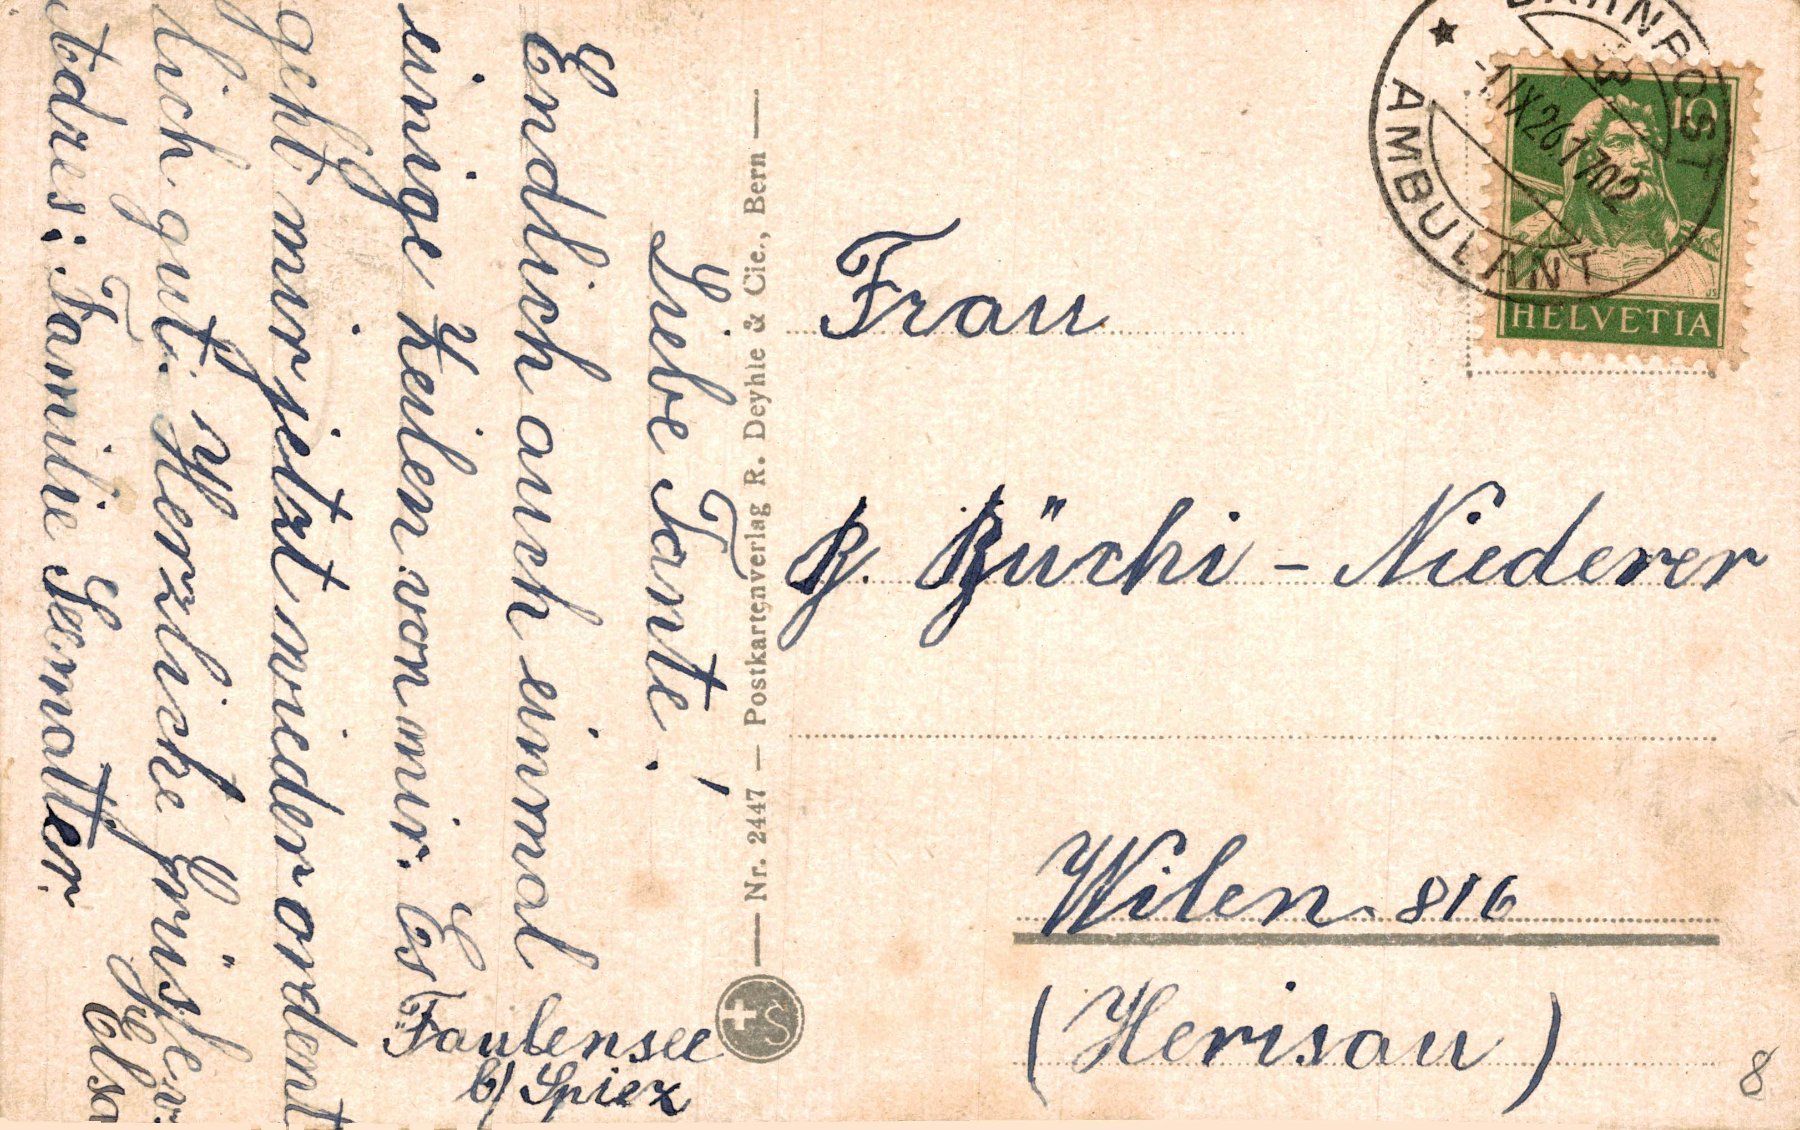 Liebe Tante!
Endlich auch einmal
einige Zeilen von mir. Es
geht mir jetzt wieder ordent
lich gut. Herzliche Grüsse v.
Elsa
Adres: Familie Sermatter
Faulensee
b/ Spiez
Nr. 2447 — Postkartenverlag R. Deyhle & Cie., Bern
S
BAHNPOST
AMBULANT
-1.IX.26.1702
3
10
HELVETIA
Frau
B. Büchi - Niederer
Wilen 816
(Herisau)
8